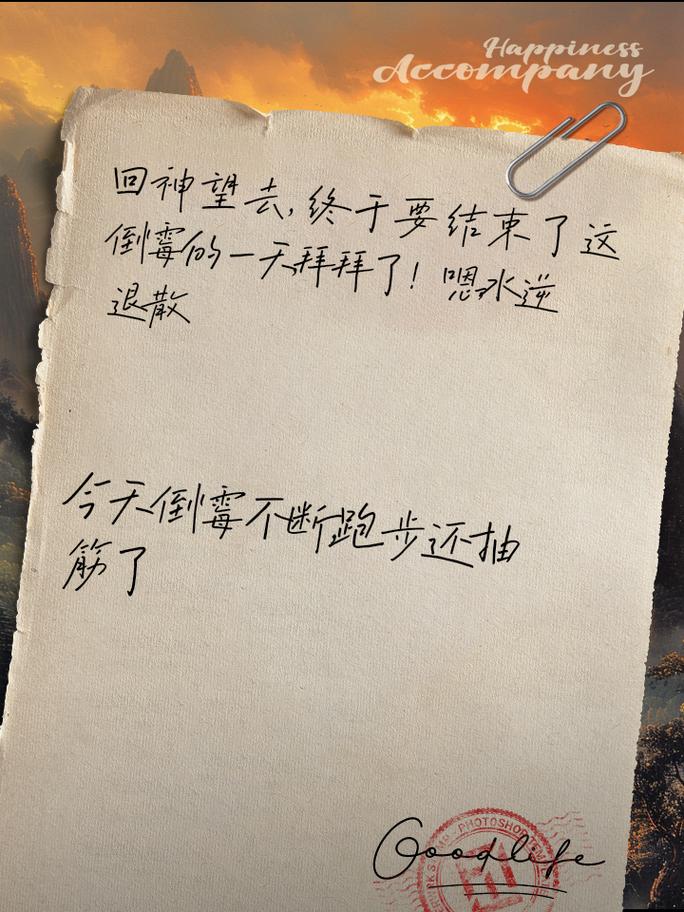 Happiness
Accompany
回神望去,终于要结束了这
倒霉的一天拜拜了!嗯水逆
退散
今天倒霉不断跑步还抽
筋了
PHOTOSHOP
Goodlife